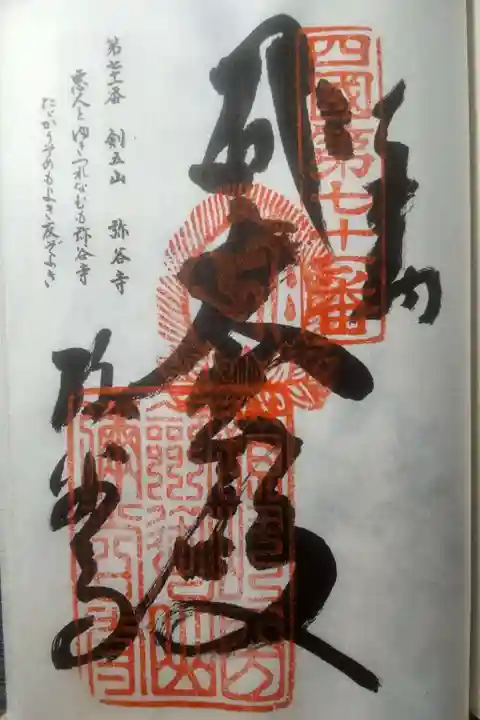 四國第七十一番
奉納
大悲殿
弥谷寺
第七十一番 剣五山 弥谷寺
悪人とゆきつれなむも弥谷寺
たゞかりそめもよき友ぞよき